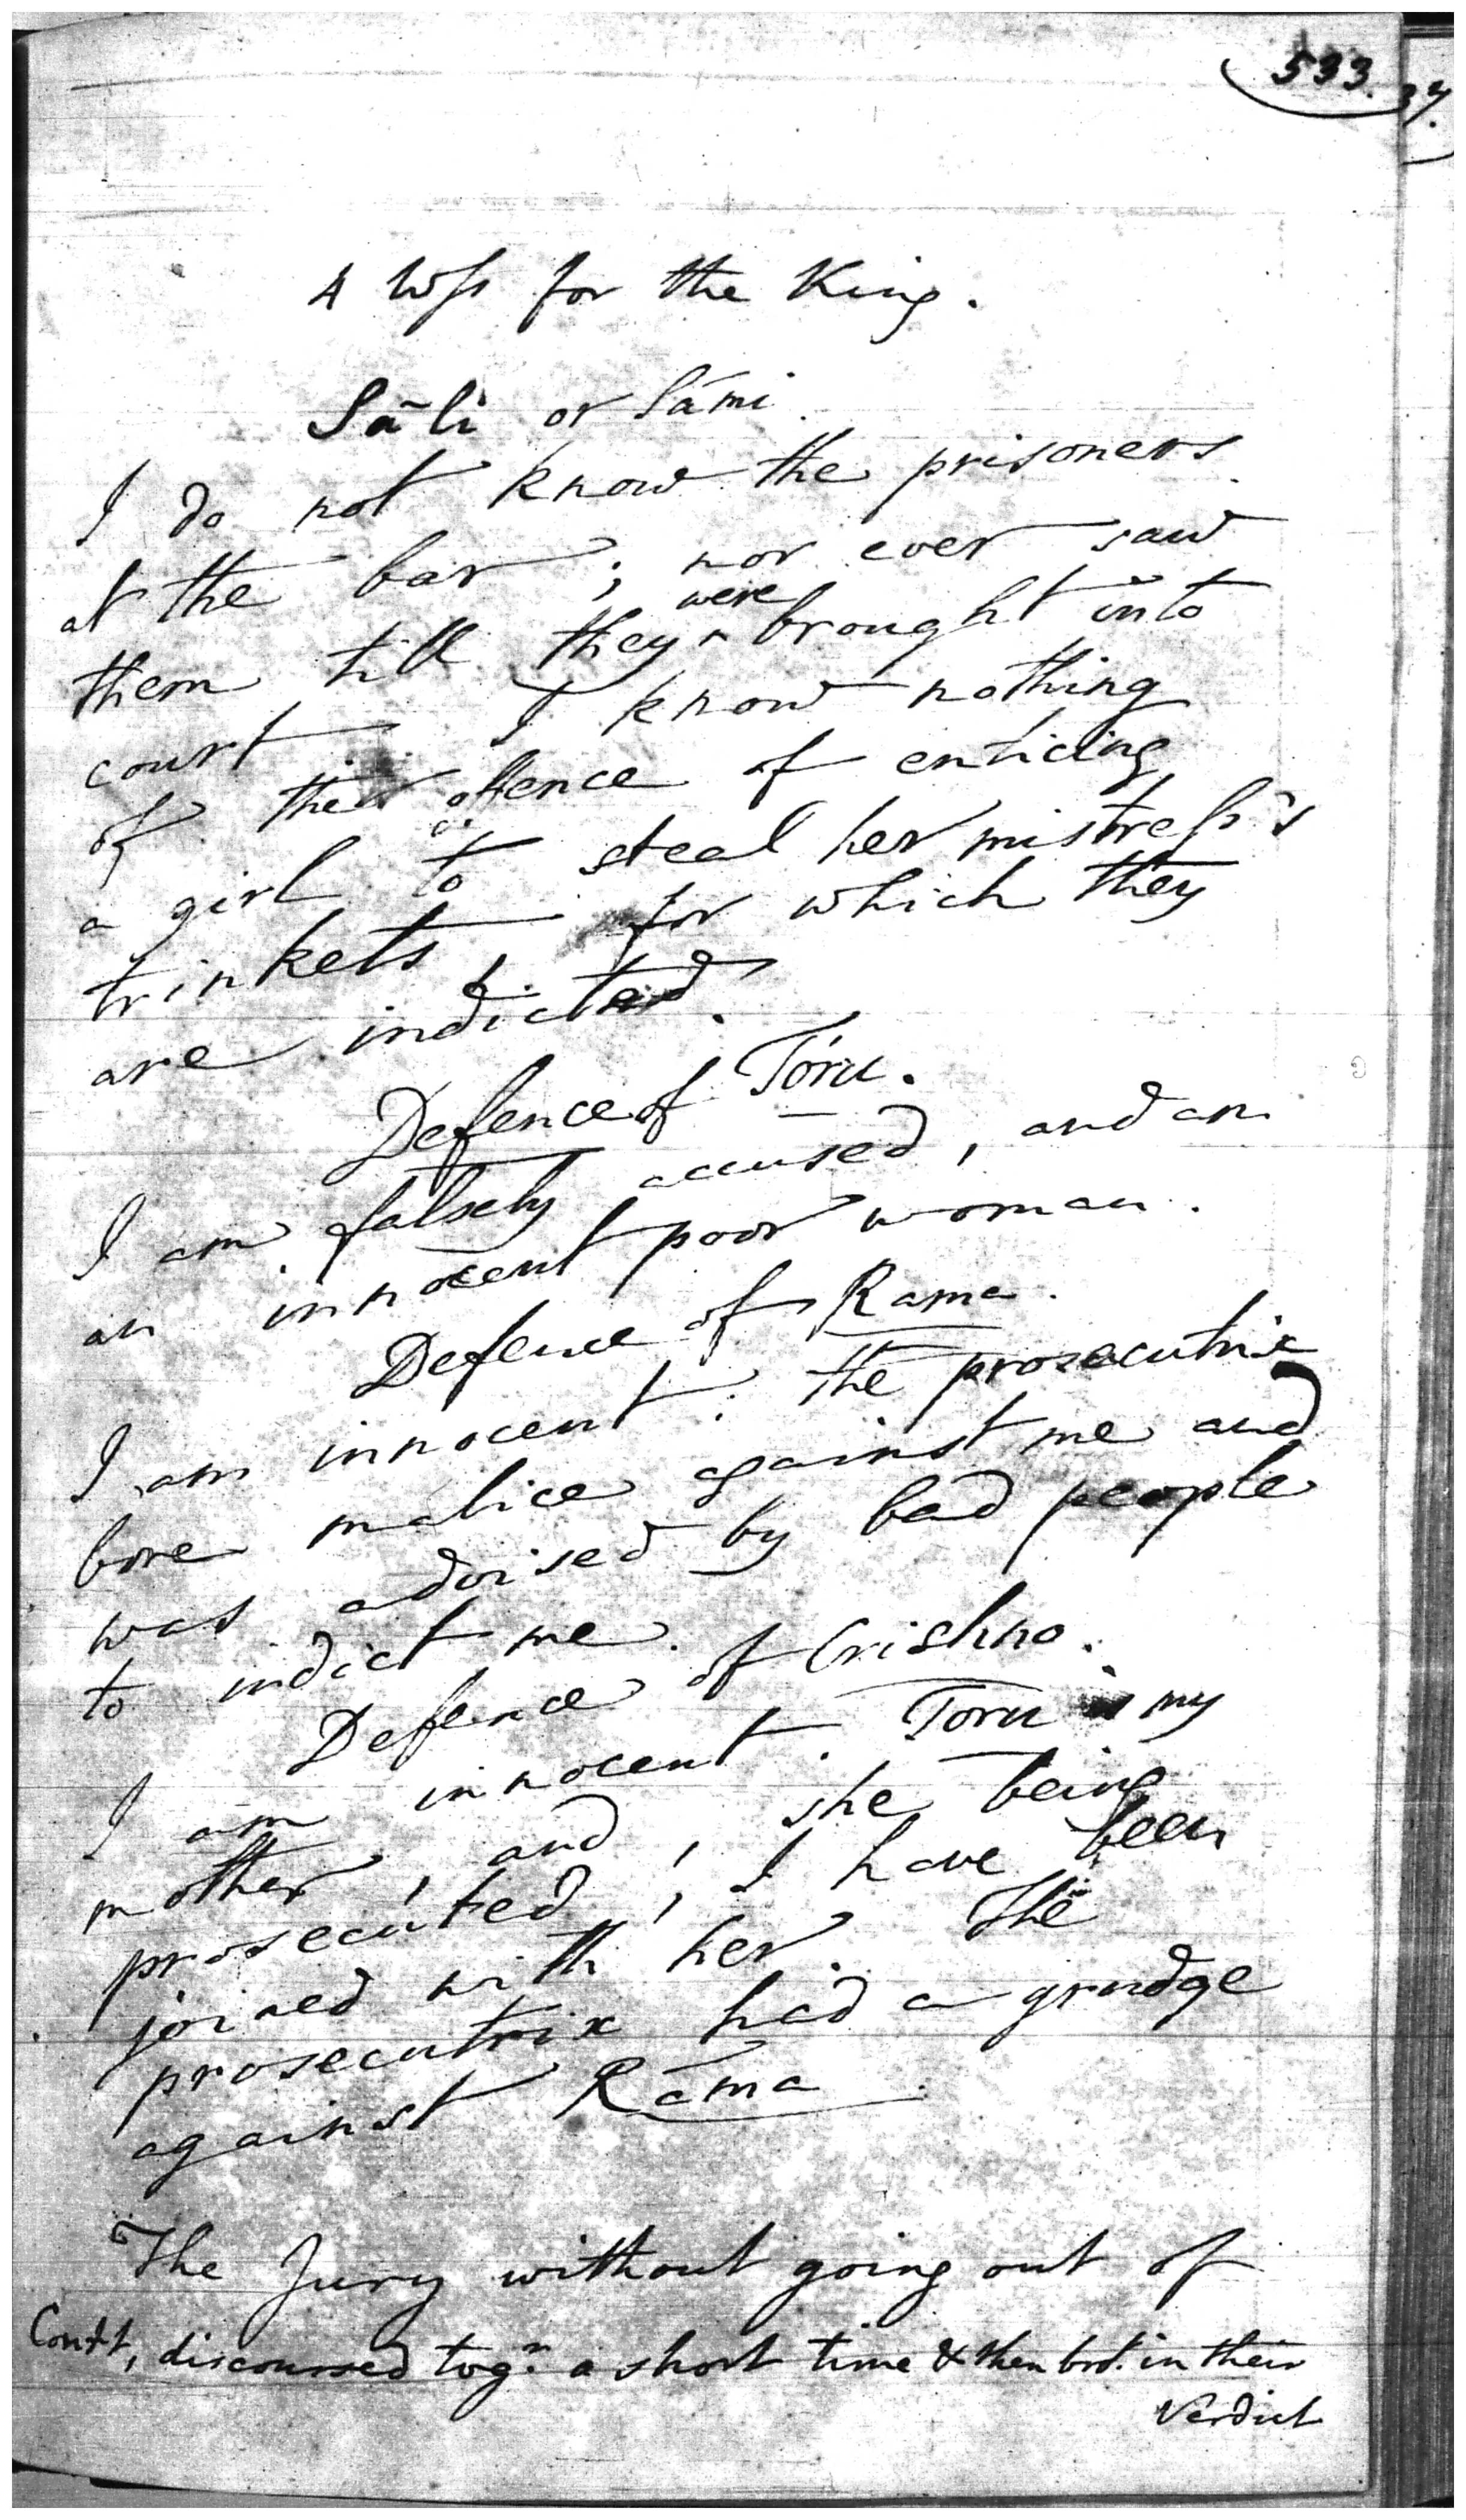 533.
37.
4 Wss for the King.
Sāli or Sámi.
I do not know the prisoners
at the bar; nor ever saw
them till they were brought into
court I know nothing
of their offence of enticing
a girl to steal her mistress's
trinkets, for which they
are indicted.
Defence of Tóru.
I am falsely accused, and am
an innocent poor woman.
Defence of Rama.
I am innocent: the prosecutrix
bore malice against me and
was advised by bad people
to indict me.
Defence of Crishno.
I am innocent. Toru is my
mother, and, she being
prosecuted, I have been
joined with her. The
prosecutrix had a grudge
against Rāma.
The Jury without going out of
Court, discoursed togr. a short time & then brot. in their
Verdict